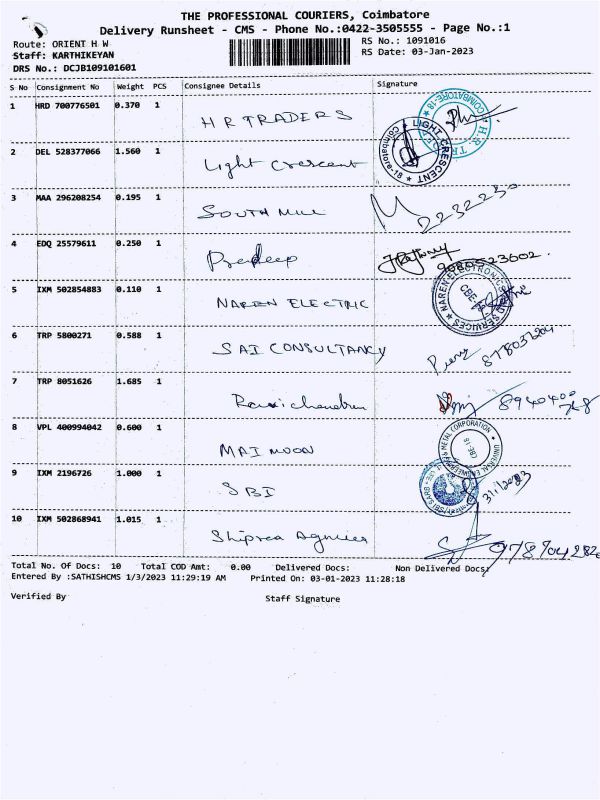 THE PROFESSIONAL COURIERS, Coimbatore
Delivery Runsheet - CMS - Phone No.:0422-3505555 - Page No.:1
Route: ORIENT H W
RS No.: 1091016
Staff: KARTHIKEYAN
RS Date: 03-Jan-2023
DRS No.: DCJB109101601
S No Consignment No Weight PCS Consignee Details Signature
1 HRD 700776501 0.370 1 H R TRADERS
COIMBATORE-18
2 DEL 528377066 1.560 1 Light Crescent
LIGHT CRESCENT Coimbatore-18
3 MAA 296208254 0.195 1 SOUTH MILL 2232230
4 EDQ 25579611 0.250 1 Pradeep 9080523602.
5 IXM 502854883 0.110 1 NAREN ELECTRIC
NAREN ELECTRONICS AND SERVICES CBE
6 TRP 5800271 0.588 1 SAI CONSULTANCY
7 TRP 8051626 1.685 1 Ravichandran
8 VPL 400994042 0.600 1 MAI MOON
UNIVERSAL ENGINEERING METAL CORPORATION CBE-18
9 IXM 2196726 1.000 1 SBI
10 IXM 502868941 1.015 1
Total No. Of Docs: 10 Total COD Amt: 0.00 Delivered Docs: Non Delivered Docs:
Entered By :SATHISHCMS 1/3/2023 11:29:19 AM Printed On: 03-01-2023 11:28:18
Verified By Staff Signature